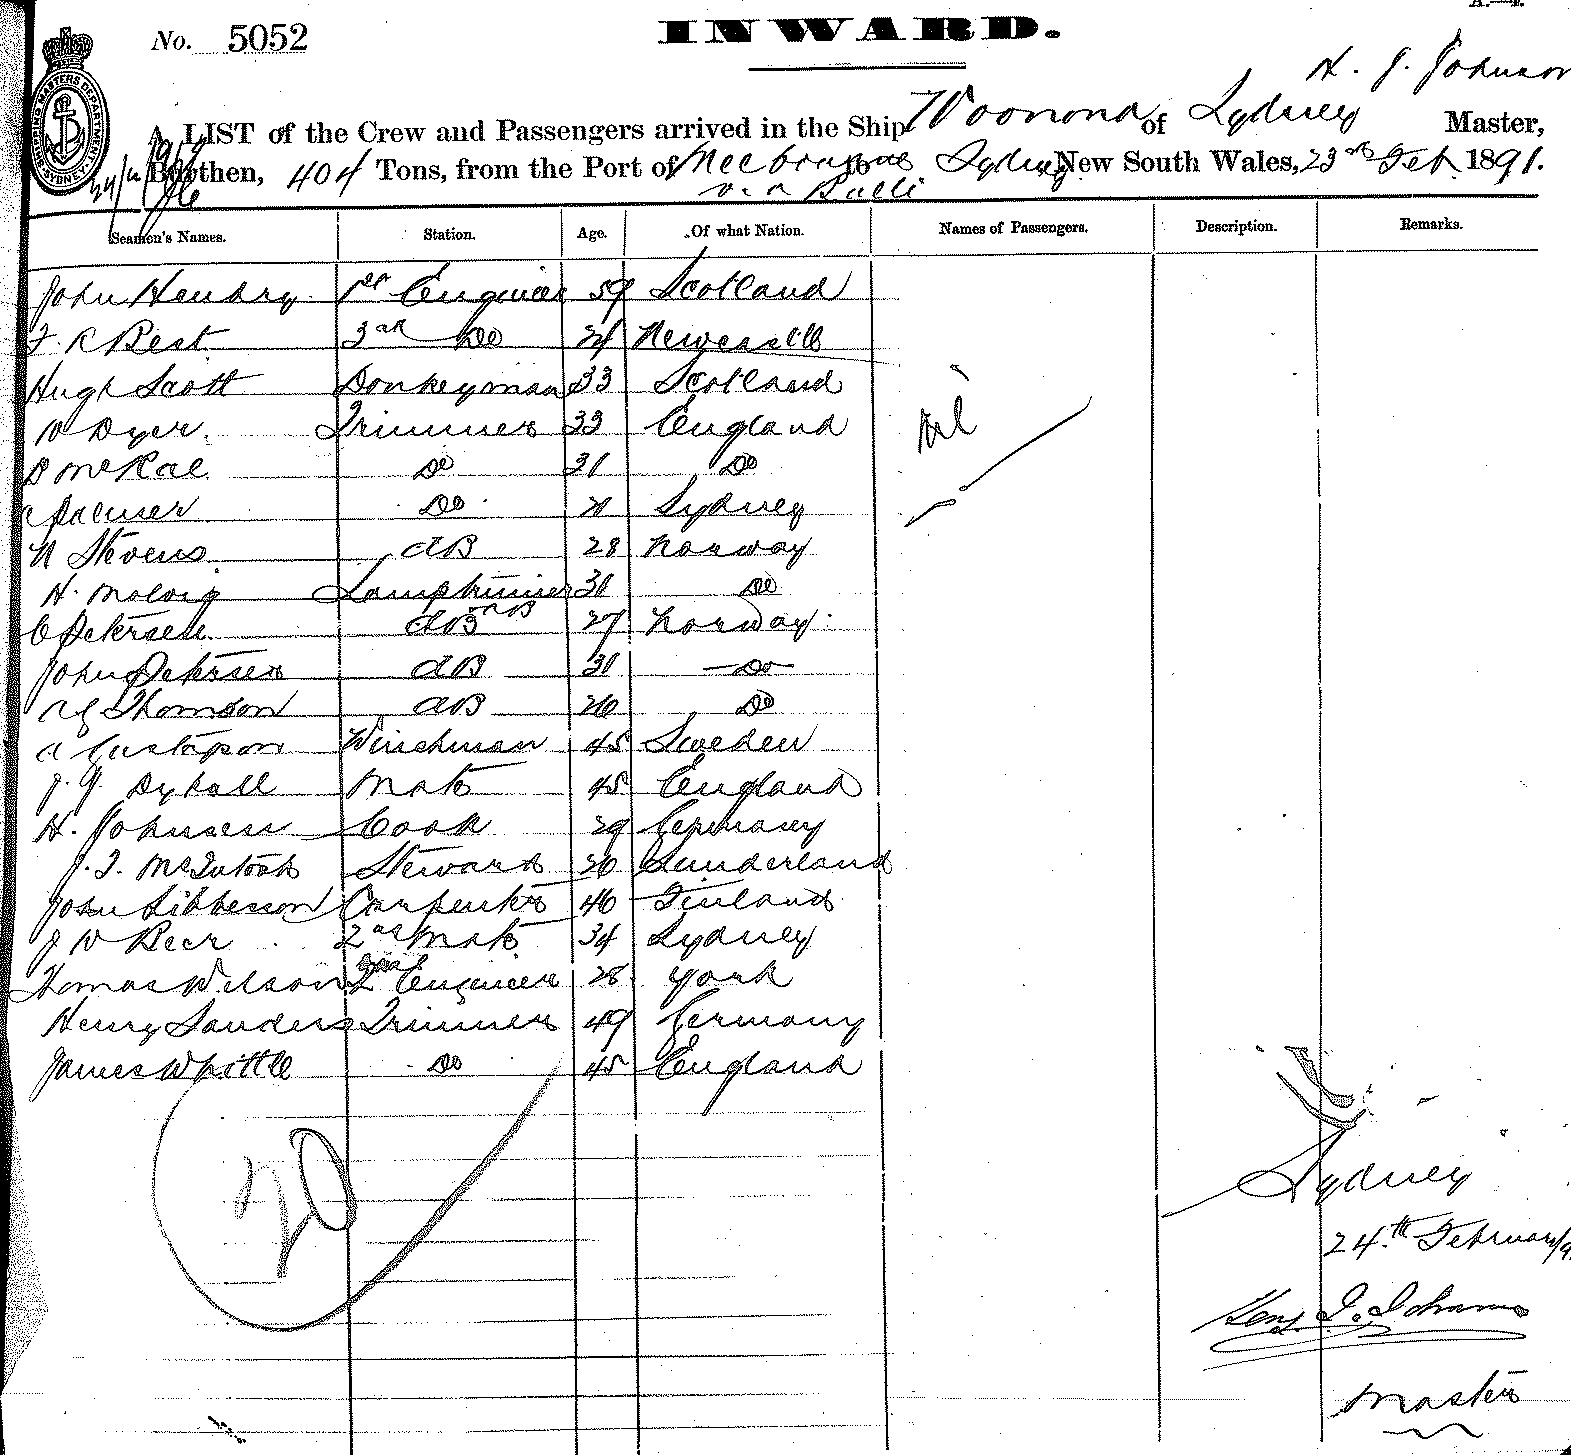 No. 5052
INWARD.
H. J. Johnson
A LIST of the Crew and Passengers arrived in the Ship Woonona of Sydney Master,
Burthen, 404 Tons, from the Port of Melbourne to Sydney New South Wales, 23rd Feb 1891.
via Bulli
Seamen's Names. Station. Age. Of what Nation. Names of Passengers. Description. Remarks.
John Hendry 1st Engineer 59 Scotland
F. R Best 3rd Do 24 Newcastle
Hugh Scott Donkeyman 33 Scotland
W Dyer Trimmer 33 England Nil
D McRae Do 31 Do
C Palmer Do 21 Sydney
N Stevens AB 28 Norway
H. Lamptrimmer 30 Do
C Petersen AB 27 Norway
John Petersen AB 31 Do
Thomson AB 26 Do
A Gustafson Winchman 45 Sweden
J. J. Dyball Mate 45 England
H. Johnsen Cook 29 Germany
J. T. McIntosh Steward 26 Sunderland
John Sibbeson Carpenter 46 Finland
J W Beer 2nd Mate 34 Sydney
Thomas Wilson 2nd Engineer 28 York
Henry Sanders Trimmer 49 Germany
James Whittle Do 45 England
20
Sydney
24th February/91
Master